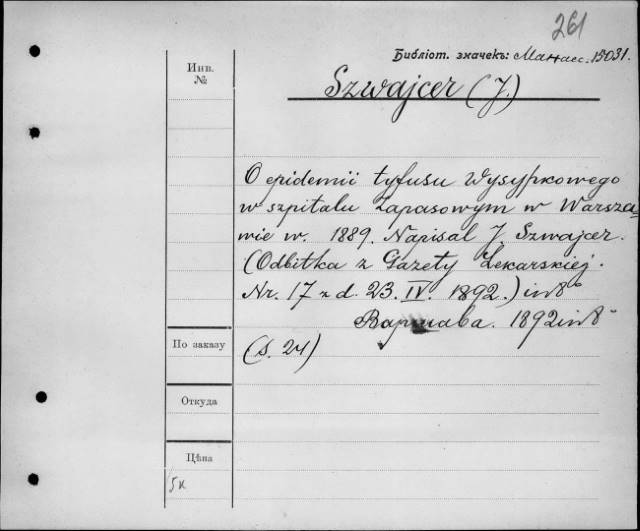 261
Библіот. значекъ: Манас. 15031.
Инв.
№
Szwajcer (J.)
O epidemii tyfusu wysypkowego
w szpitalu zapasowym w Warsza-
wie w. 1889. Napisał J. Szwajcer.
(Odbitka z Gazety Lekarskiej.
Nr. 17 z d. 23. IV. 1892.) in 8°
Варшава. 1892 in 8°
По заказу
(s. 24)
Откуда
Цѣна
5к